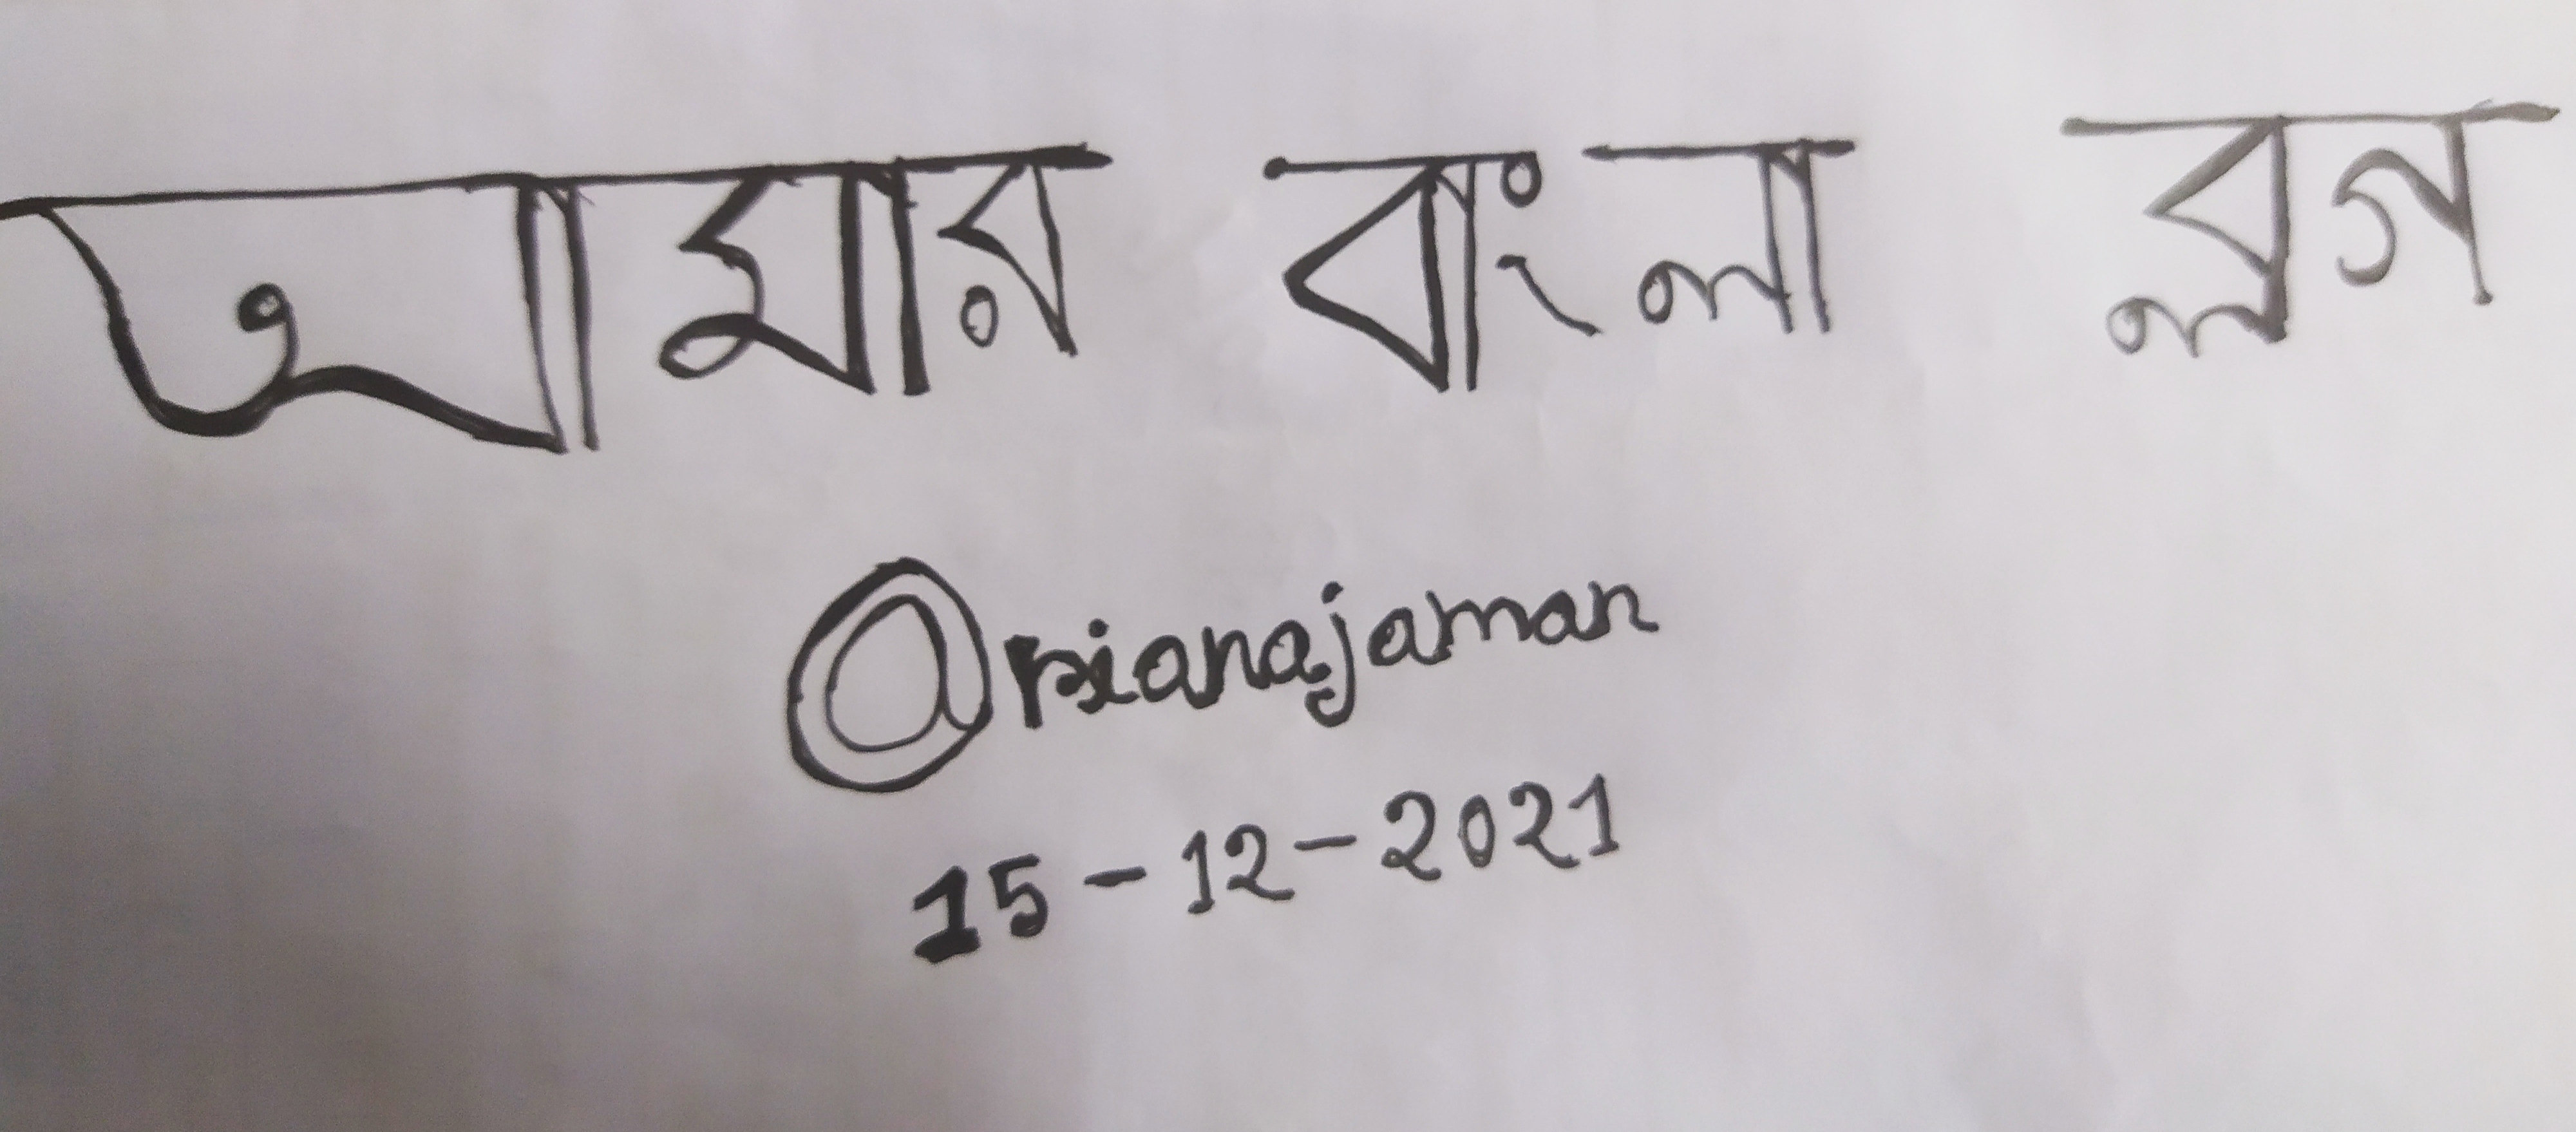 আমার বাংলা ব্লগ
@rsianajaman
15-12-2021